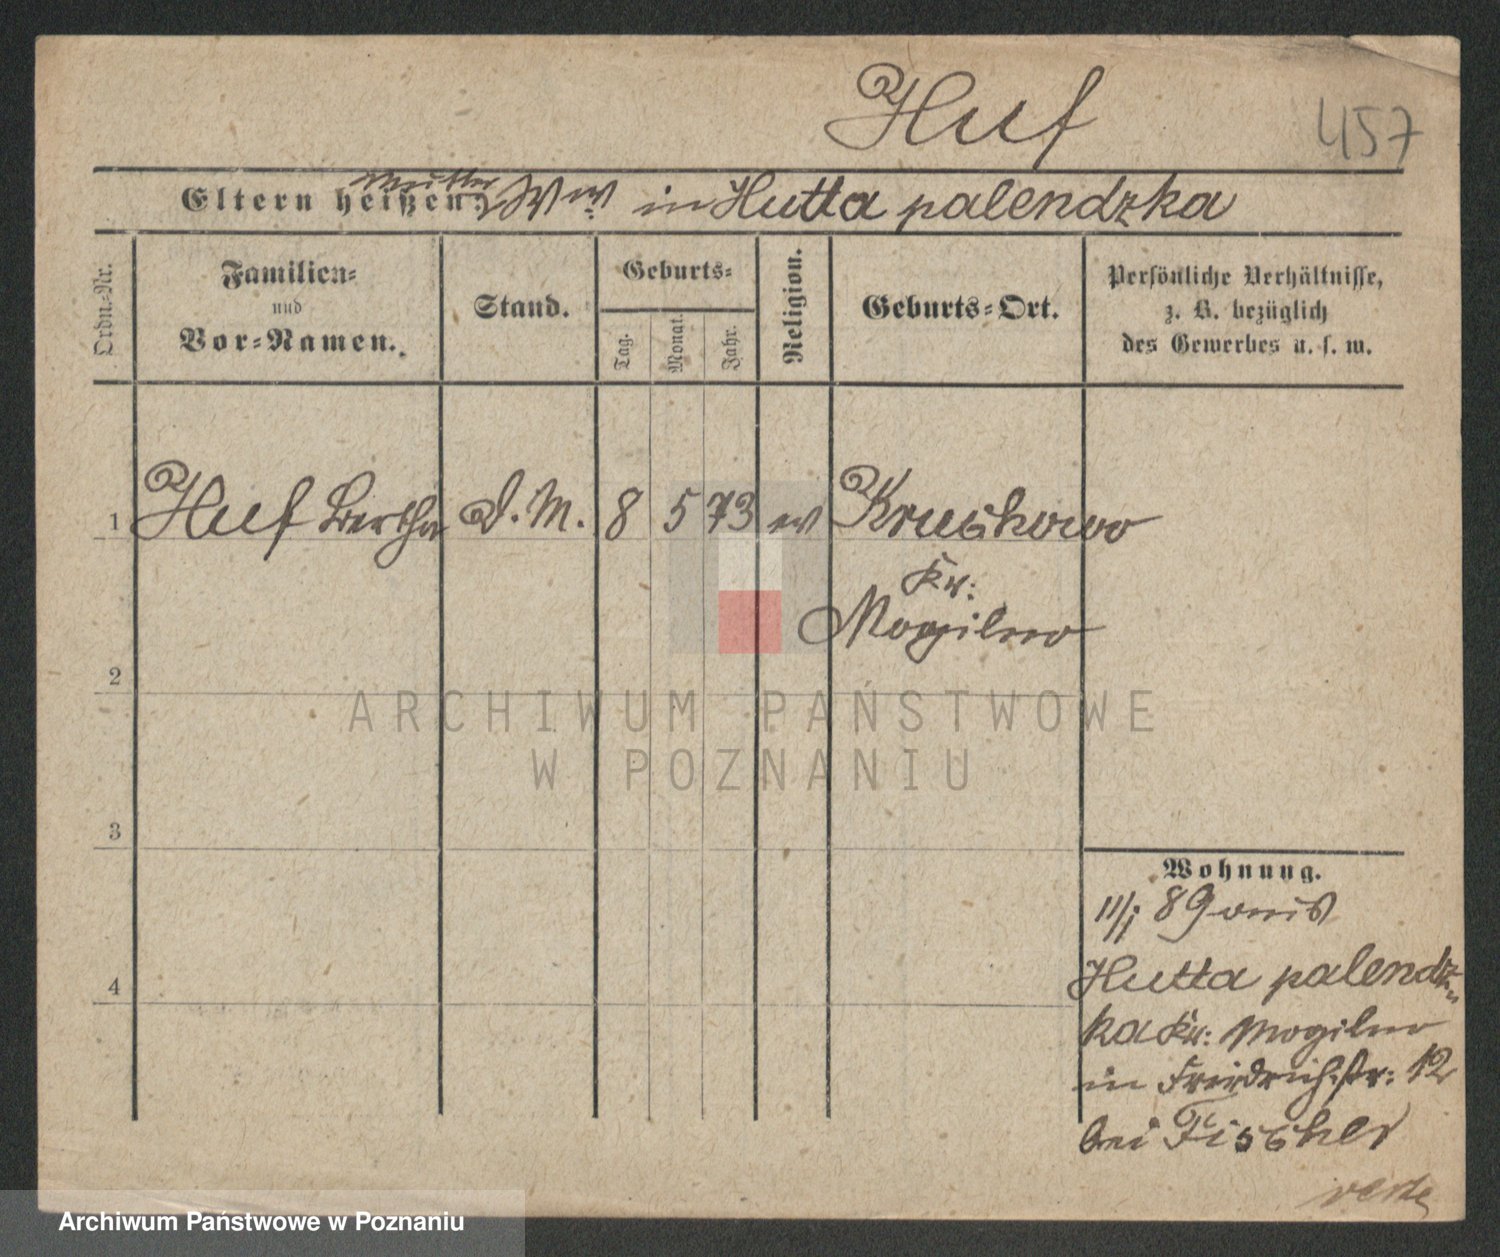 Huf
457
Mutter
Eltern heißen: Ww. in Hutta palendzka
Ordn.-Nr.
Familien-
und
Vor-Namen.
Stand.
Geburts-
Tag.
Monat.
Jahr.
Religion.
Geburts-Ort.
Persönliche Verhältnisse,
z. B. bezüglich
des Gewerbes u. s. w.
1 Huf Bertha D. M. 8 5 73 ev Kruchowo
Kr:
Mogilno
2
3
4
ARCHIWUM PAŃSTWOWE
W POZNANIU
Wohnung.
11/1 89 aus
Hutta palendz-
ka Kr: Mogilno
in Friedrichstr: 12
bei Fischler
Archiwum Państwowe w Poznaniu